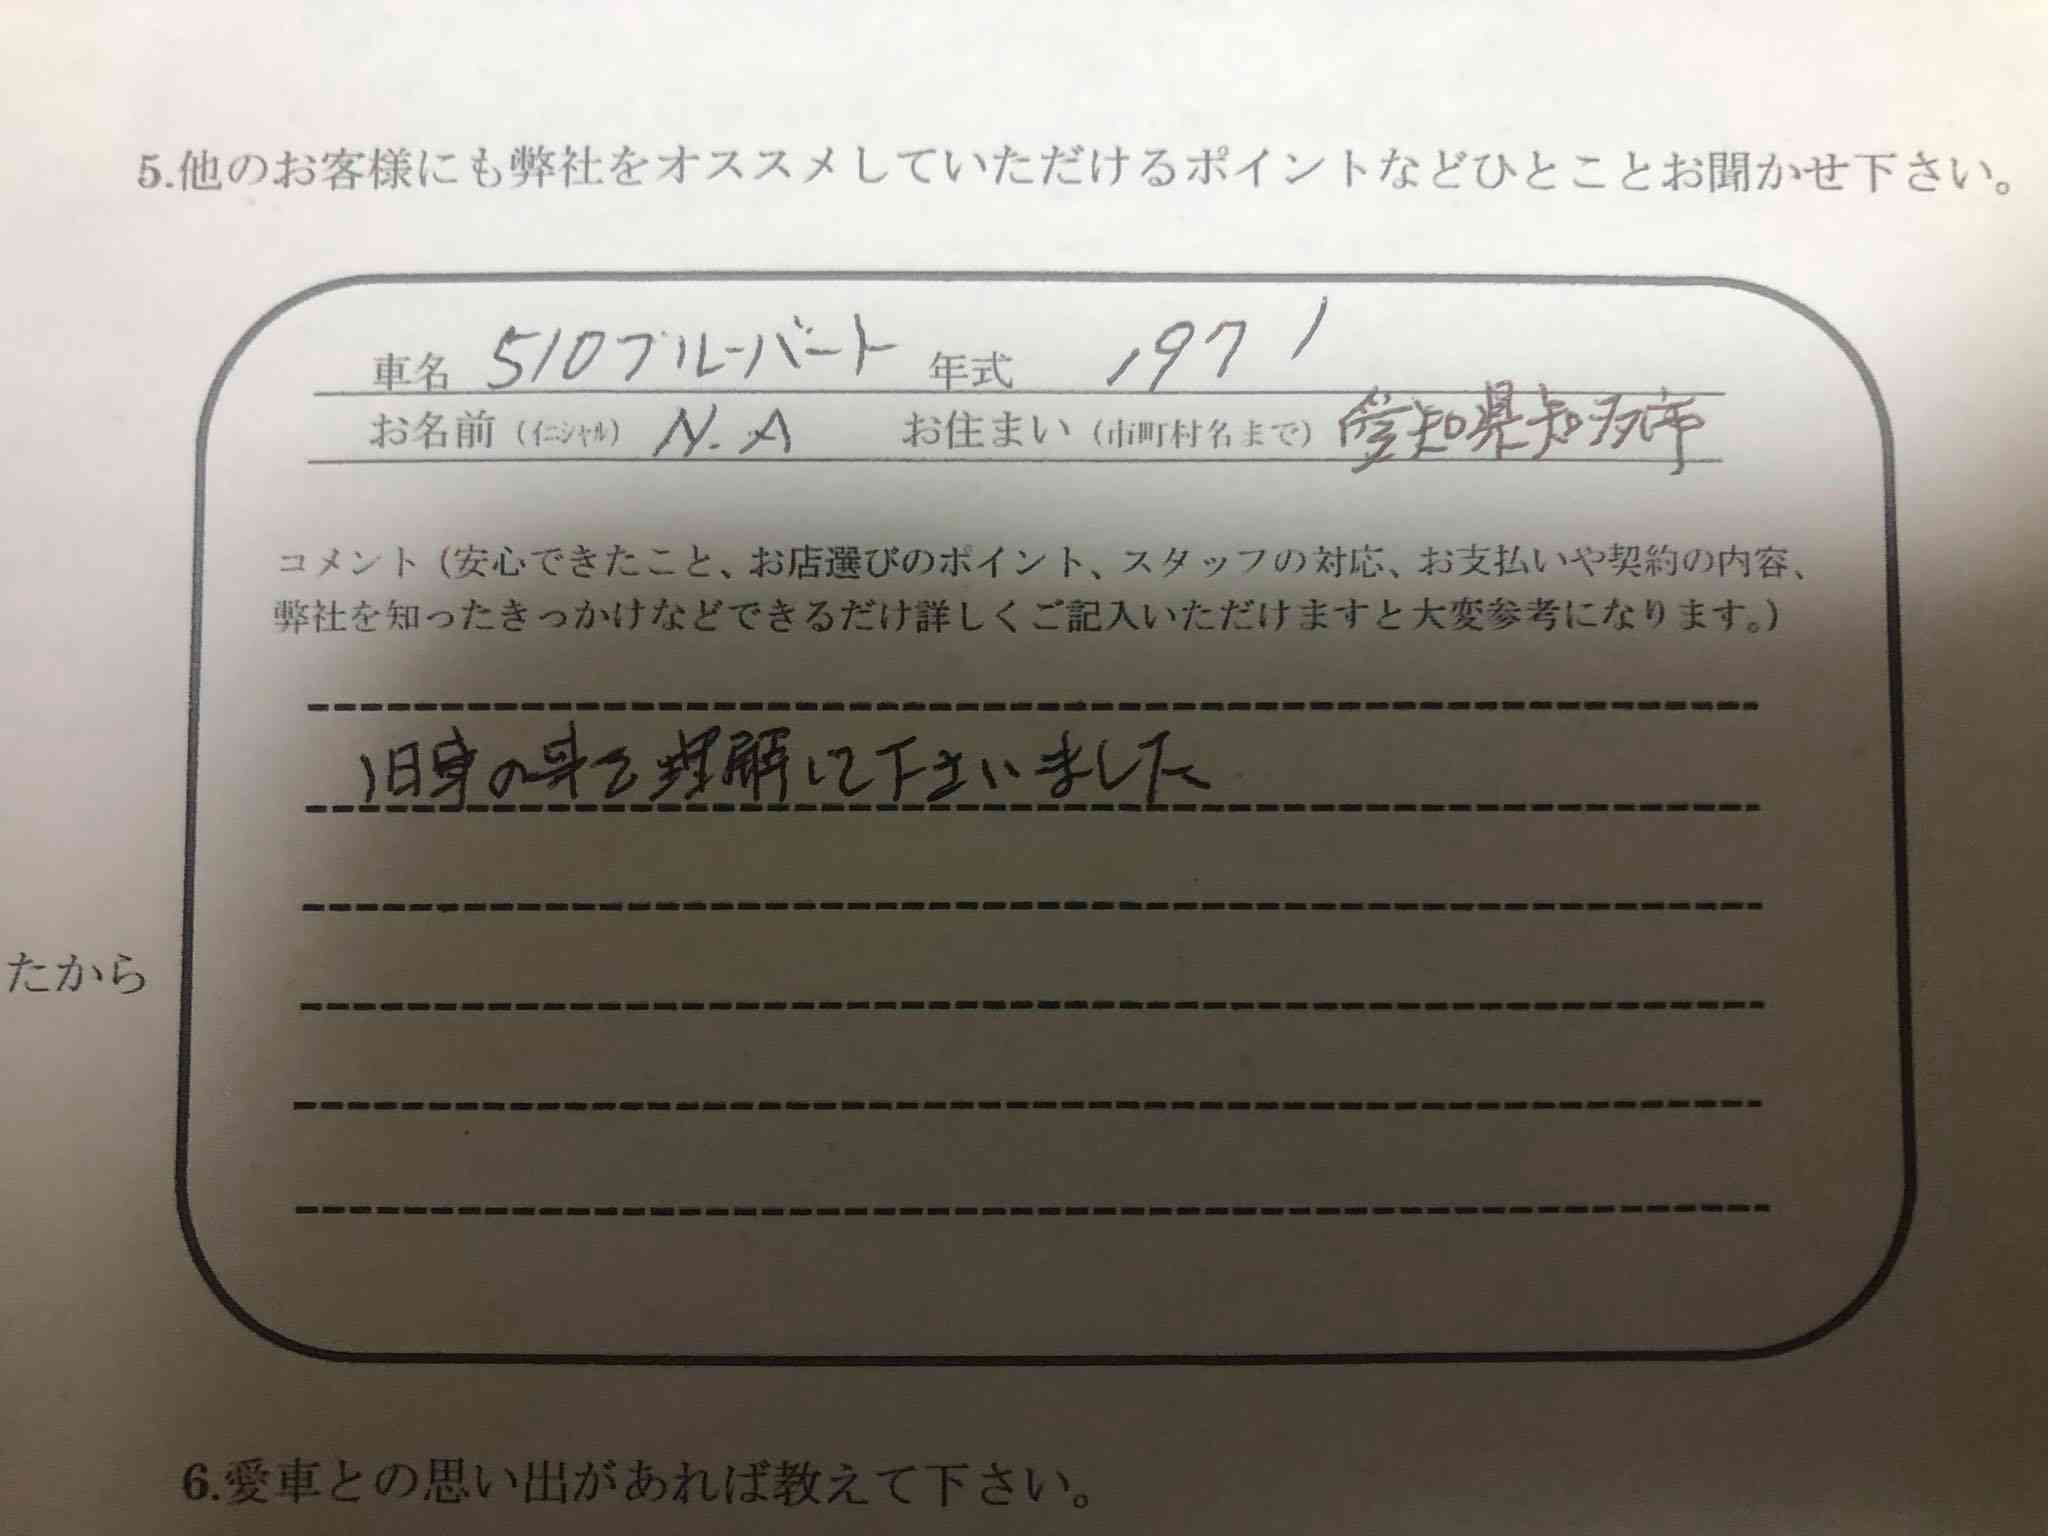 5.他のお客様にも弊社をオススメしていただけるポイントなどひとことお聞かせ下さい。
車名 510ブルーバード 年式 1971
お名前（イニシャル） N.A お住まい（市町村名まで） 愛知県知多市
コメント（安心できたこと、お店選びのポイント、スタッフの対応、お支払いや契約の内容、
弊社を知ったきっかけなどできるだけ詳しくご記入いただけますと大変参考になります。）
旧車の事を理解して下さいました
たから
6.愛車との思い出があれば教えて下さい。